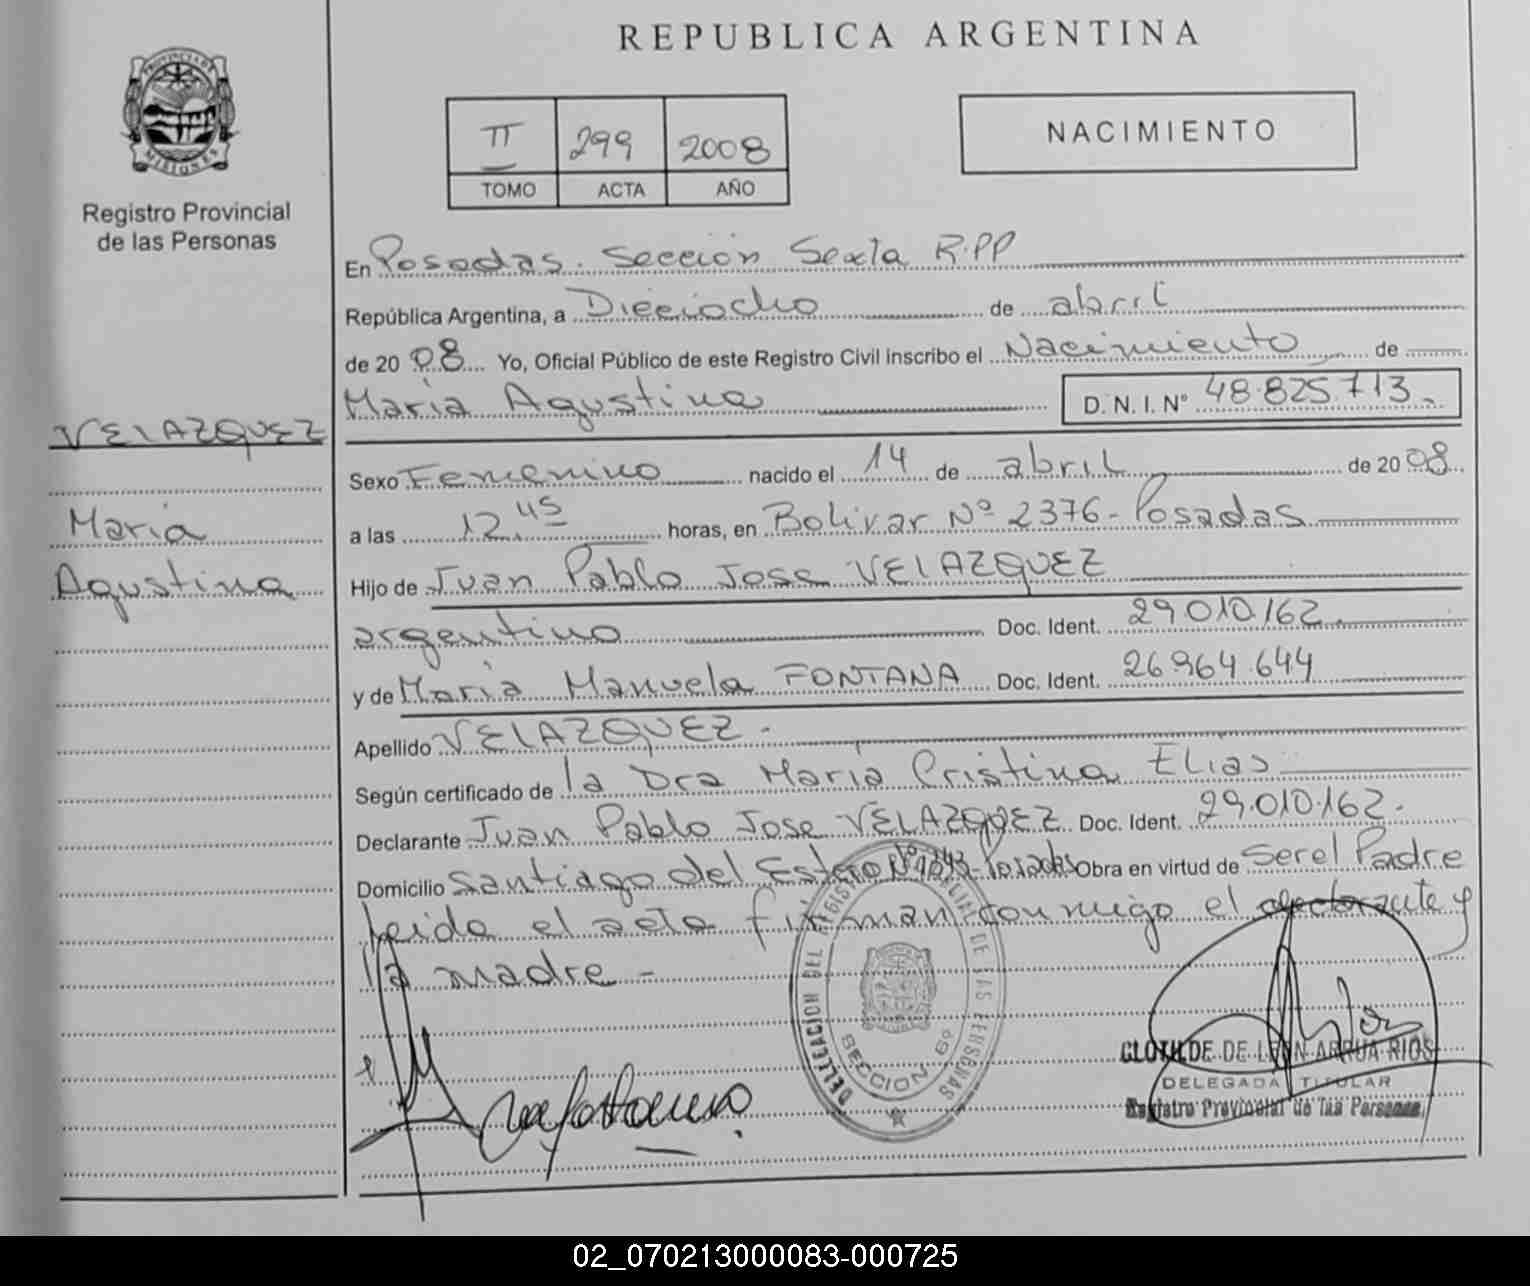 REPUBLICA ARGENTINA
PROVINCIA DE
MISIONES
Registro Provincial
de las Personas
II 299 2008
TOMO ACTA AÑO
NACIMIENTO
En Posadas. Sección Sexta R.PP
República Argentina, a Dieciocho de abril
de 2008 Yo, Oficial Público de este Registro Civil inscribo el Nacimiento de
María Agustina D. N. I. N° 48.825.713.
VELAZQUEZ
María
Agustina
Sexo Femenino nacido el 14 de abril de 2008
a las 12.45 horas, en Bolivar Nº 2376-Posadas
Hijo de Juan Pablo Jose VELAZQUEZ
argentino Doc. Ident. 29.010.162.
y de María Manuela FONTANA Doc. Ident. 26.964.644
Apellido VELAZQUEZ.
Según certificado de la Dra María Cristina Elias
Declarante Juan Pablo Jose VELAZQUEZ Doc. Ident. 29.010.162.
Domicilio Santiago del Estero Nº Posadas Obra en virtud de Ser el Padre
Leida el acta firman conmigo el declarante y
la madre -
DELEGACION DEL REGISTRO PROVINCIAL DE LAS PERSONAS
SECCION 6º
CLOTILDE DE LEON ARRUA RIOS
DELEGADA TITULAR
Registro Provincial de las Personas
02_070213000083-000725